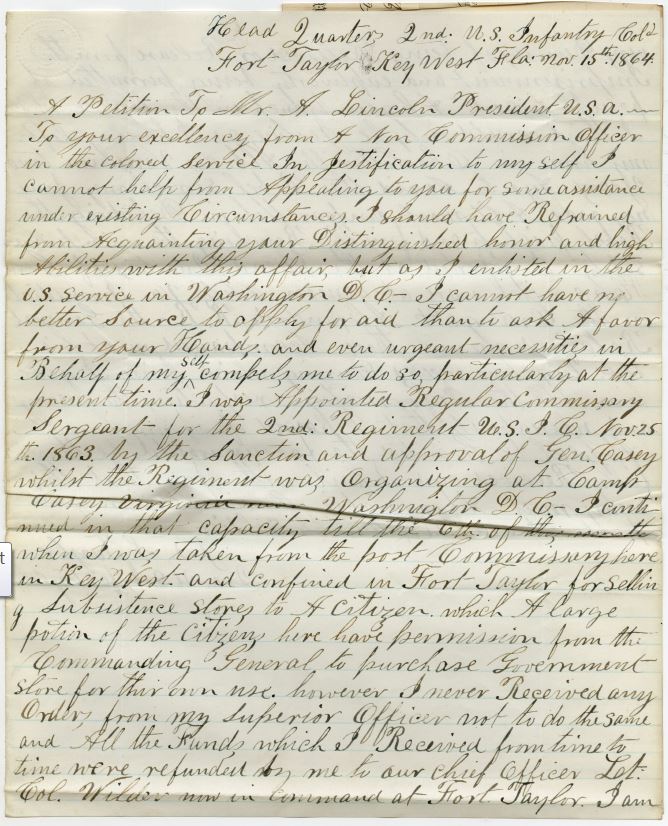 Head Quarters 2nd. U.S. Infantry Cold
Fort Taylor Key West Fla: Nov. 15th. 1864.
A Petition To Mr. A. Lincoln President U.S.a.
To your excellency from A Non Commission Officer
in the colored Service In Justification to my self I
cannot help from Appealing to you for some assistance
under existing Circumstances. I should have Refrained
from Acquainting your Distinguished honor and high
Abilities with this affair, but as I enlisted in the
U.S. Service in Washington D.C– I cannot have no
better Source to apply for aid than to ask A favor
from your Hands, and even urgeant necessities in
Behalf of my self compels me to do so, particularly at the
present time. I was Appointed Regular Commissary
Sergeant for the 2nd: Regiment U.S.I.C. Nov. 25
th. 1863. by the Sanction and approval of Gen. Casey
whilst the Regiment was Organizing at Camp
Casey Virginia near Washington D.C– I conti
nued in that capacity till the 6th. of this month
when I was taken from the post Commissary here
in Key West. and confined in Fort Taylor for Sellin
g Subsistence stores to A Citizen. which A large
potion of the Citizens here have permission from the
Commanding General to purchase Government
store for thir own use. however I never Received any
Orders from my Superior Officer not to do the same
and All the Funds which I Received from time to
time were refunded by me to our chief Officer Lt.
Col. Wilder now in command at Fort Taylor. I am